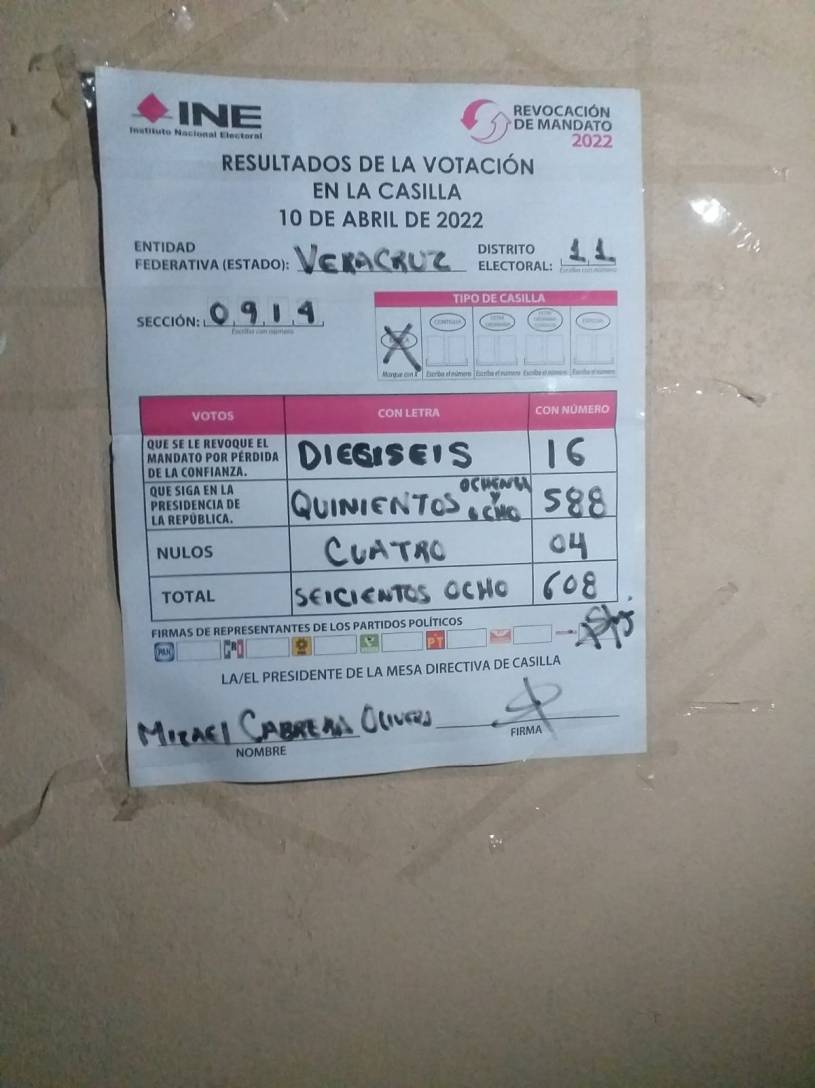 INE
Instituto Nacional Electoral
REVOCACIÓN
DE MANDATO
2022
RESULTADOS DE LA VOTACIÓN
EN LA CASILLA
10 DE ABRIL DE 2022
ENTIDAD
FEDERATIVA (ESTADO): VERACRUZ
DISTRITO
ELECTORAL: 11
Escriba con número
SECCIÓN: 0914
Escriba con número
TIPO DE CASILLA
CONTIGUA
Marque con X Escriba el número Escriba el número Escriba el número Escriba el número
VOTOS CON LETRA CON NÚMERO
QUE SE LE REVOQUE EL
MANDATO POR PÉRDIDA
DE LA CONFIANZA.
DIECISEIS 16
QUE SIGA EN LA
PRESIDENCIA DE
LA REPÚBLICA.
QUINIENTOS OCHENTA Y OCHO 588
NULOS CUATRO 04
TOTAL SEICIENTOS OCHO 608
FIRMAS DE REPRESENTANTES DE LOS PARTIDOS POLÍTICOS
PAN PRI PT
LA/EL PRESIDENTE DE LA MESA DIRECTIVA DE CASILLA
CABRERA
NOMBRE
FIRMA